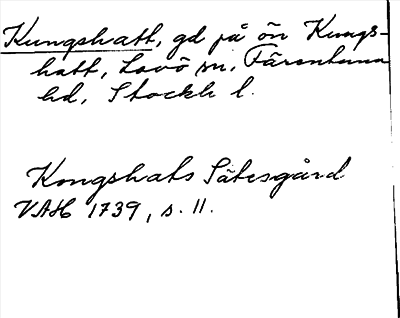 Kungshatt, gd på ön Kungs-
hatt, Lovö sn, Färentuna
hd, Stockh l.
Kongshats Sätesgård
VAH 1739, s. 11.